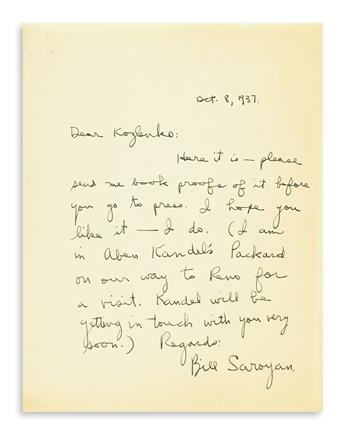 Oct. 8, 1937.
Dear Kozlenko:
Here it is — please
send me book proofs of it before
you go to press. I hope you
like it — I do. (I am
in Aben Kandel's Packard
on our way to Reno for
a visit. Kandel will be
getting in touch with you very
soon.) Regards:
Bill Saroyan.